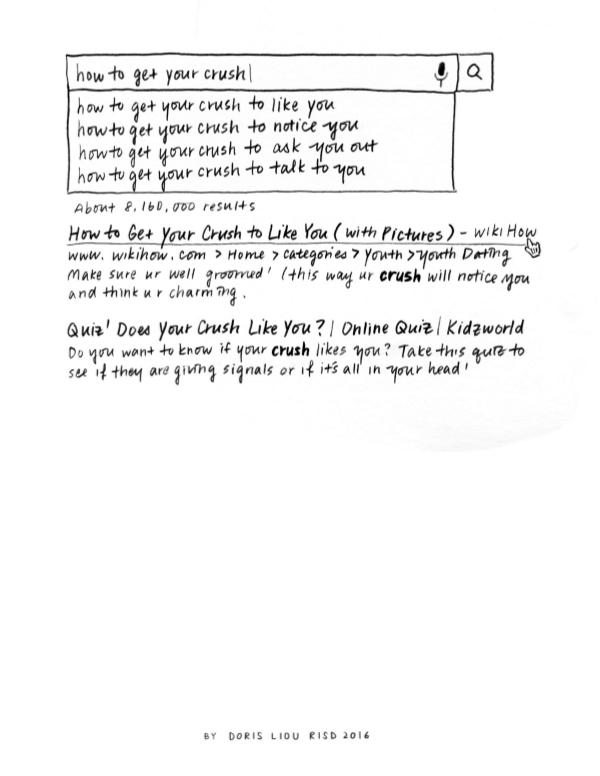 how to get your crush
how to get your crush to like you
how to get your crush to notice you
how to get your crush to ask you out
how to get your crush to talk to you
About 8,160,000 results
How to Get Your Crush to Like You (with Pictures) - wikiHow
www.wikihow.com > Home > categories > Youth > Youth Dating
Make sure ur well groomed! (this way ur crush will notice you
and think u r charming.
Quiz! Does Your Crush Like You? | Online Quiz | Kidzworld
Do you want to know if your crush likes you? Take this quiz to
see if they are giving signals or if it's all in your head!
BY DORIS LIOU RISD 2016